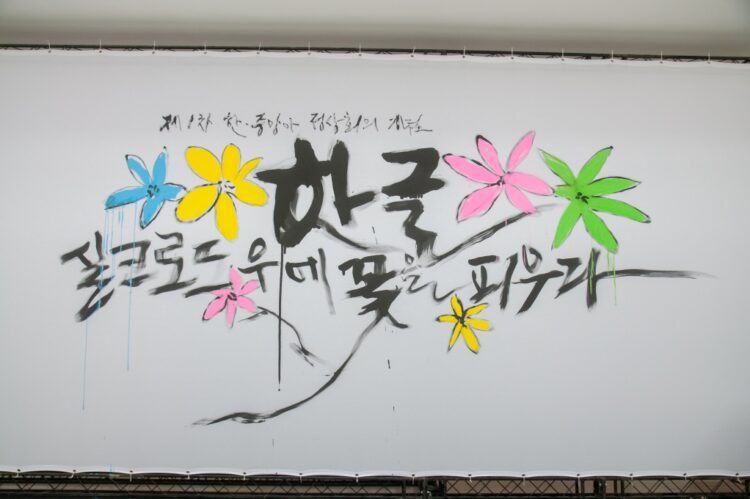 제1차 한·중앙아 정상회의 개최
한글
실크로드 우에 꽃을 피우다